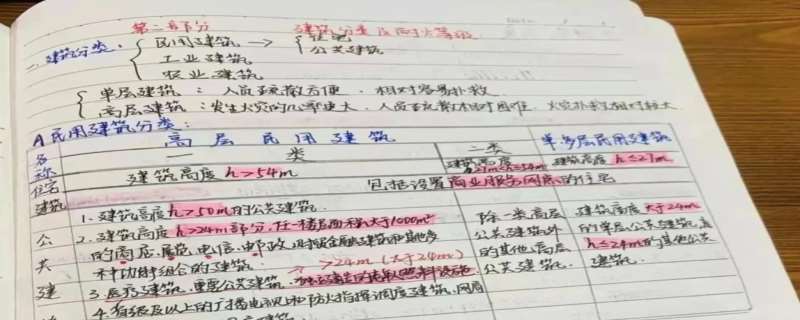 第二部分 建筑分类及耐火等级
一、建筑分类: 民用建筑 → 住宅
公共建筑
工业建筑
农业建筑
单层建筑: 人员疏散方便、相对容易扑救
高层建筑: 发生火灾的几率更大、人员疏散相对困难、火灾扑救相对较大
A民用建筑分类:
名称 高层民用建筑 单多层民用建筑
一类 二类
住宅建筑 建筑高度h>54m 建筑高度 27m<h≤54m 建筑高度h≤27m
包括设置商业服务网点的住宅
公共建 1.建筑高度h>50m的公共建筑
2.建筑高度h>24m部分,任一楼层面积大于1000m²
的商店.展览.电信.邮政.财贸金融建筑和其他多
种功能组合的建筑. >24m(大于24m)
3.医疗建筑、重要公共建筑、独立建造的老年人照料设施
4.省级及以上的广播电视和防火指挥调度建筑、网局
除一类高层
公共建筑外
的其他高层
公共建筑.
建筑高度大于24m
的单层公共建筑及
h≤24m的其他公共
建筑.